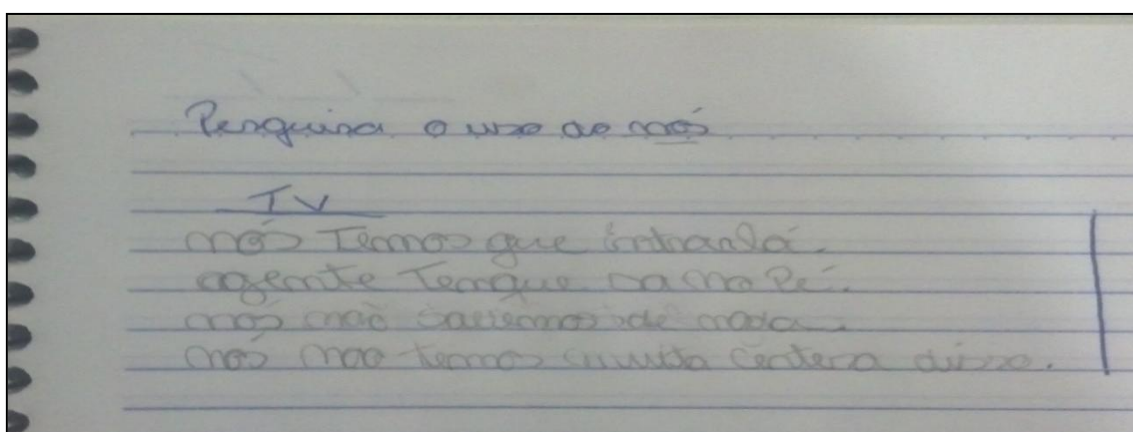 Pesquisa o uso do nós
TV
nós Temos que intrar lá.
agente Temque na no Pé.
nós não sabemos de nada.
nós nao temos muita certeza disso.